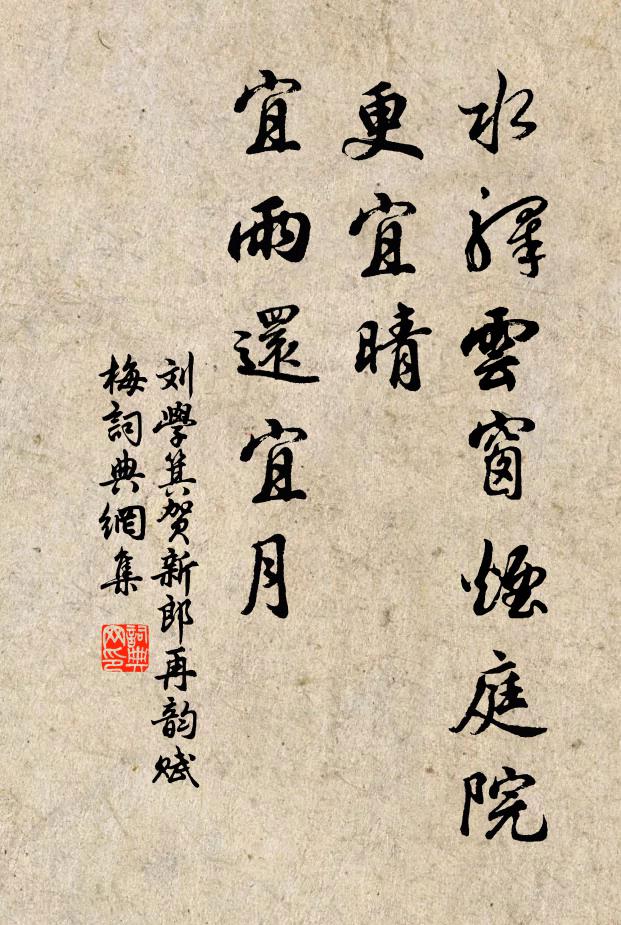 水驛雲窗煙庭院
更宜晴
宜雨還宜月
刘學箕贺新郎再韵赋
梅詞典網集
詞典网印